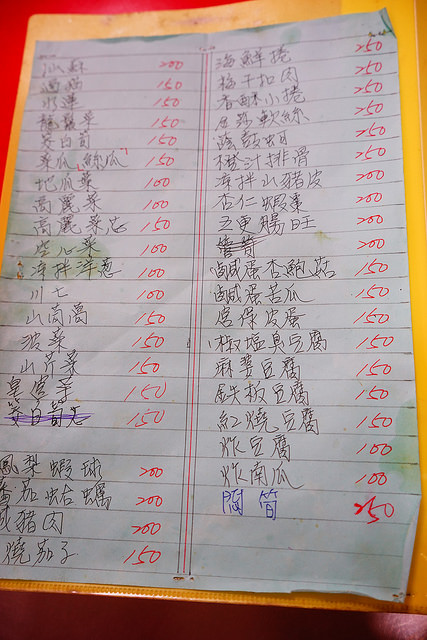 瓜耔 200
過貓 150
水蓮 150
龍鬚菜 150
茭白筍 150
菜瓜、絲瓜 150
地瓜葉 100
高麗菜 100
高麗菜芯 150
空心菜 100
涼拌洋蔥 100
川七 100
山茼萵 150
波菜 150
山芹菜 150
皇宮菜 150
茭白筍芯 150
鳳梨蝦球 200
番茄蛤蠣 200
鹹豬肉 200
燒茄子 150
海鮮捲 250
梅干扣肉 250
香酥小捲 250
軟絲 250
蔭鼓蚵 250
橙汁排骨 250
涼拌山豬皮 200
杏仁蝦棗 200
五更腸旺 200
200
鹹蛋杏鮑菇 150
鹹蛋苦瓜 150
宮保皮蛋 150
椒塩臭豆腐 150
麻婆豆腐 150
鉄板豆腐 150
紅燒豆腐 150
炸豆腐 100
炸南瓜 100
筒 250